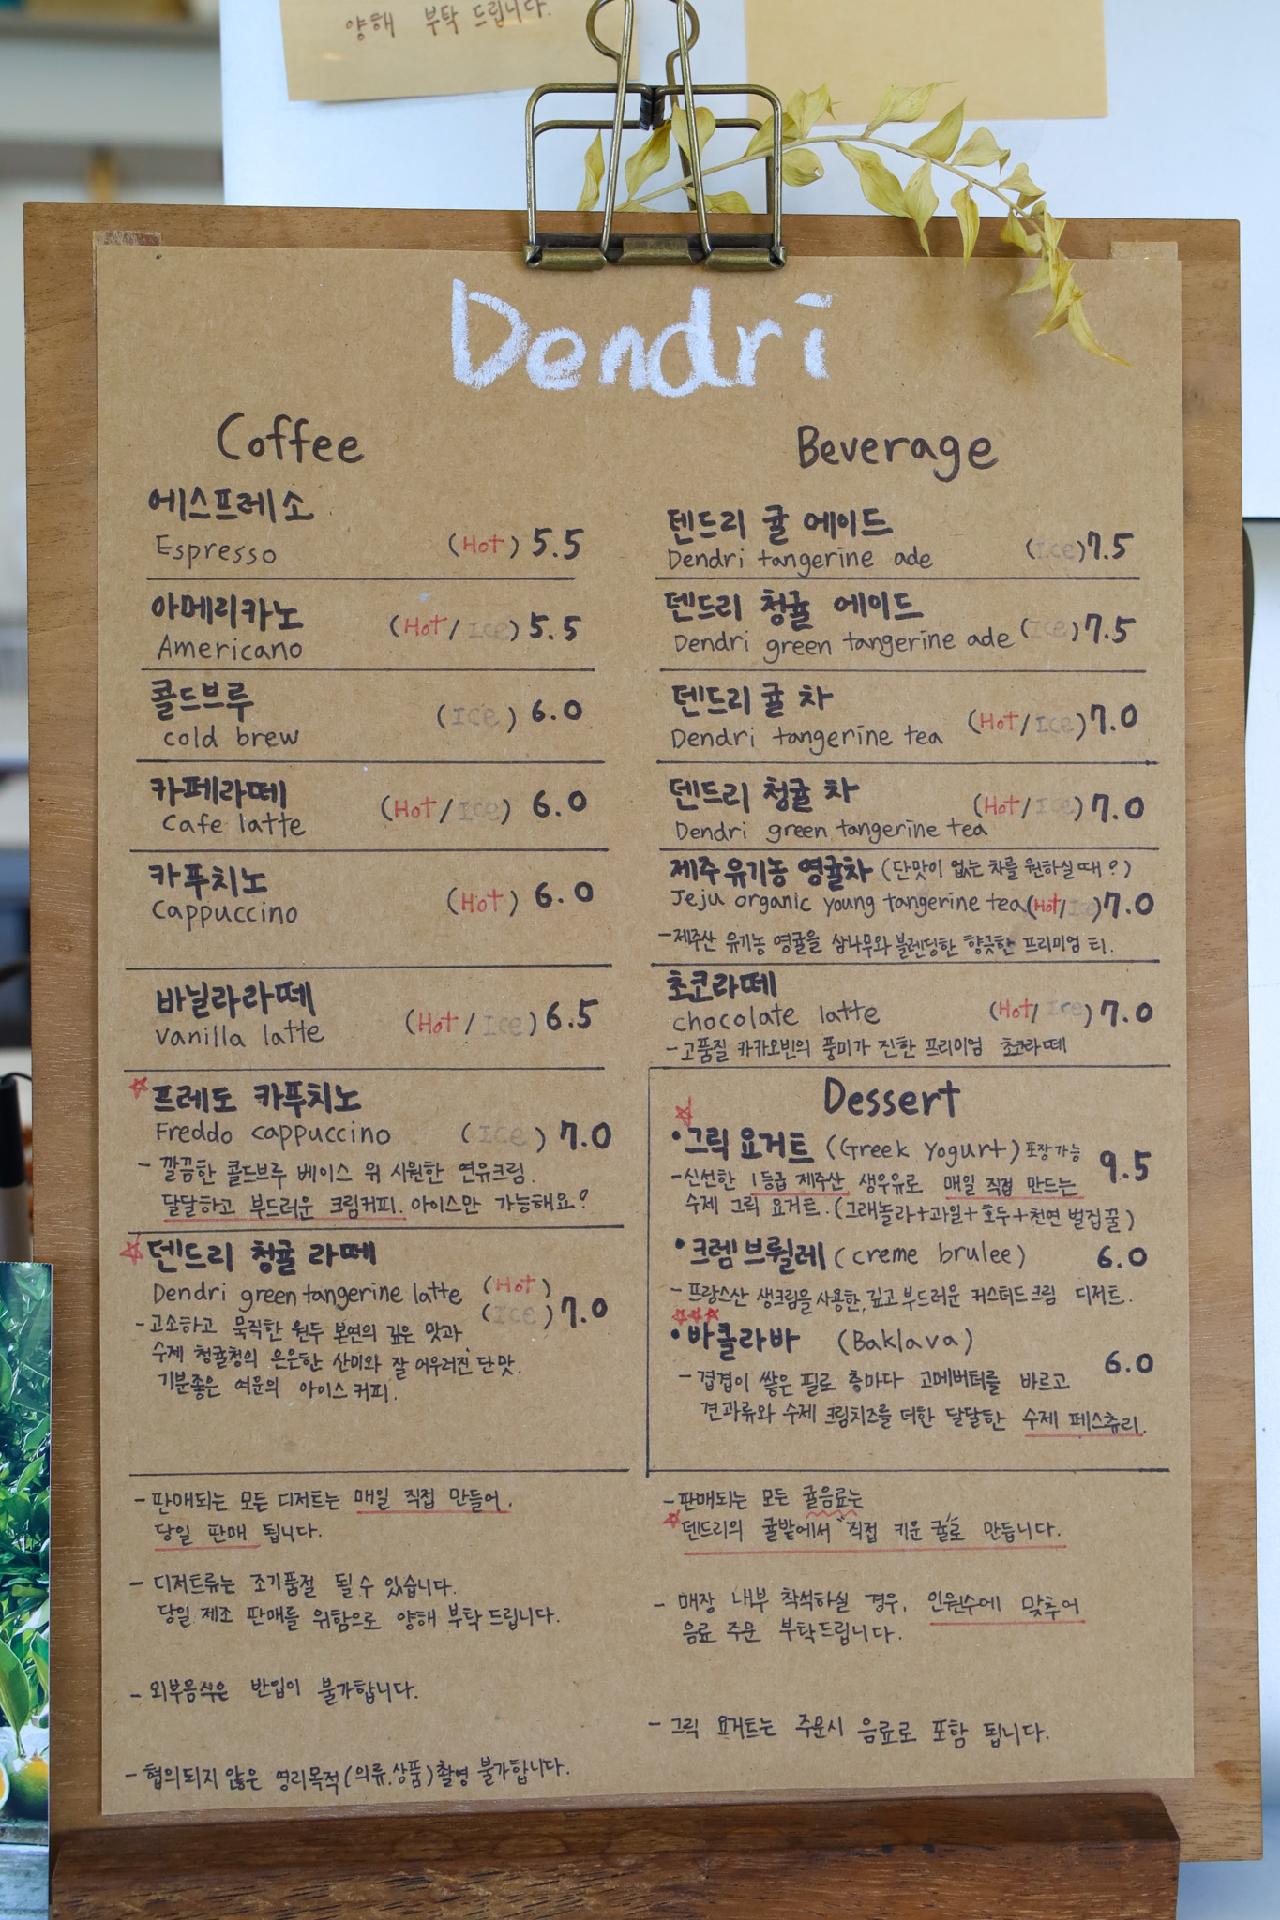 양해 부탁 드립니다.
Dendri
Coffee
에스프레소
Espresso (Hot) 5.5
아메리카노
Americano (Hot/Ice) 5.5
콜드브루
cold brew (Ice) 6.0
카페라떼
Cafe latte (Hot/Ice) 6.0
카푸치노
Cappuccino (Hot) 6.0
바닐라라떼
Vanilla latte (Hot/Ice) 6.5
☆프레도 카푸치노
Freddo cappuccino (Ice) 7.0
- 깔끔한 콜드브루 베이스 위 시원한 연유크림.
달달하고 부드러운 크림커피. 아이스만 가능해요?
☆덴드리 청귤 라떼
Dendri green tangerine latte (Hot)
(Ice) 7.0
- 고소하고 묵직한 원두 본연의 깊은 맛과
수제 청귤청의 은은한 산미와 잘 어우러진 단맛.
기분좋은 여운의 아이스 커피.
Beverage
텐드리 귤 에이드
Dendri tangerine ade (Ice) 7.5
덴드리 청귤 에이드
Dendri green tangerine ade (Ice) 7.5
덴드리 귤 차
Dendri tangerine tea (Hot/Ice) 7.0
덴드리 청귤 차
Dendri green tangerine tea (Hot/Ice) 7.0
제주 유기농 영귤차 (단맛이 없는 차를 원하실 때?)
Jeju organic young tangerine tea (Hot/Ice) 7.0
- 제주산 유기농 영귤을 삼나무와 블렌딩한 향긋한 프리미엄 티.
초코라떼
chocolate latte (Hot/Ice) 7.0
- 고품질 카카오빈의 풍미가 진한 프리미엄 초코라떼
Dessert
☆
•그릭 요거트 (Greek Yogurt) 포장가능 9.5
- 신선한 1등급 제주산 생우유로 매일 직접 만드는
수제 그릭 요거트. (그래놀라+과일+호두+천연 벌집꿀)
•크렘 브륄레 (creme brulee) 6.0
- 프랑스산 생크림을 사용한, 깊고 부드러운 커스터드크림 디저트.
☆☆☆
•바클라바 (Baklava) 6.0
- 겹겹이 쌓은 필로 층마다 고메버터를 바르고
견과류와 수제 크림치즈를 더한 달달한 수제 페스츄리.
- 판매되는 모든 디저트는 매일 직접 만들어,
당일 판매 됩니다.
- 디저트류는 조기품절 될 수 있습니다.
당일 제조 판매를 위함으로 양해 부탁 드립니다.
- 외부음식은 반입이 불가합니다.
- 협의되지 않은 영리목적(의류,상품)촬영 불가합니다.
- 판매되는 모든 귤음료는
☆덴드리의 귤밭에서 "직접 키운 귤"로 만듭니다.
- 매장 내부 착석하실 경우, 인원수에 맞추어
음료 주문 부탁드립니다.
- 그릭 요거트는 주문시 음료로 포함 됩니다.